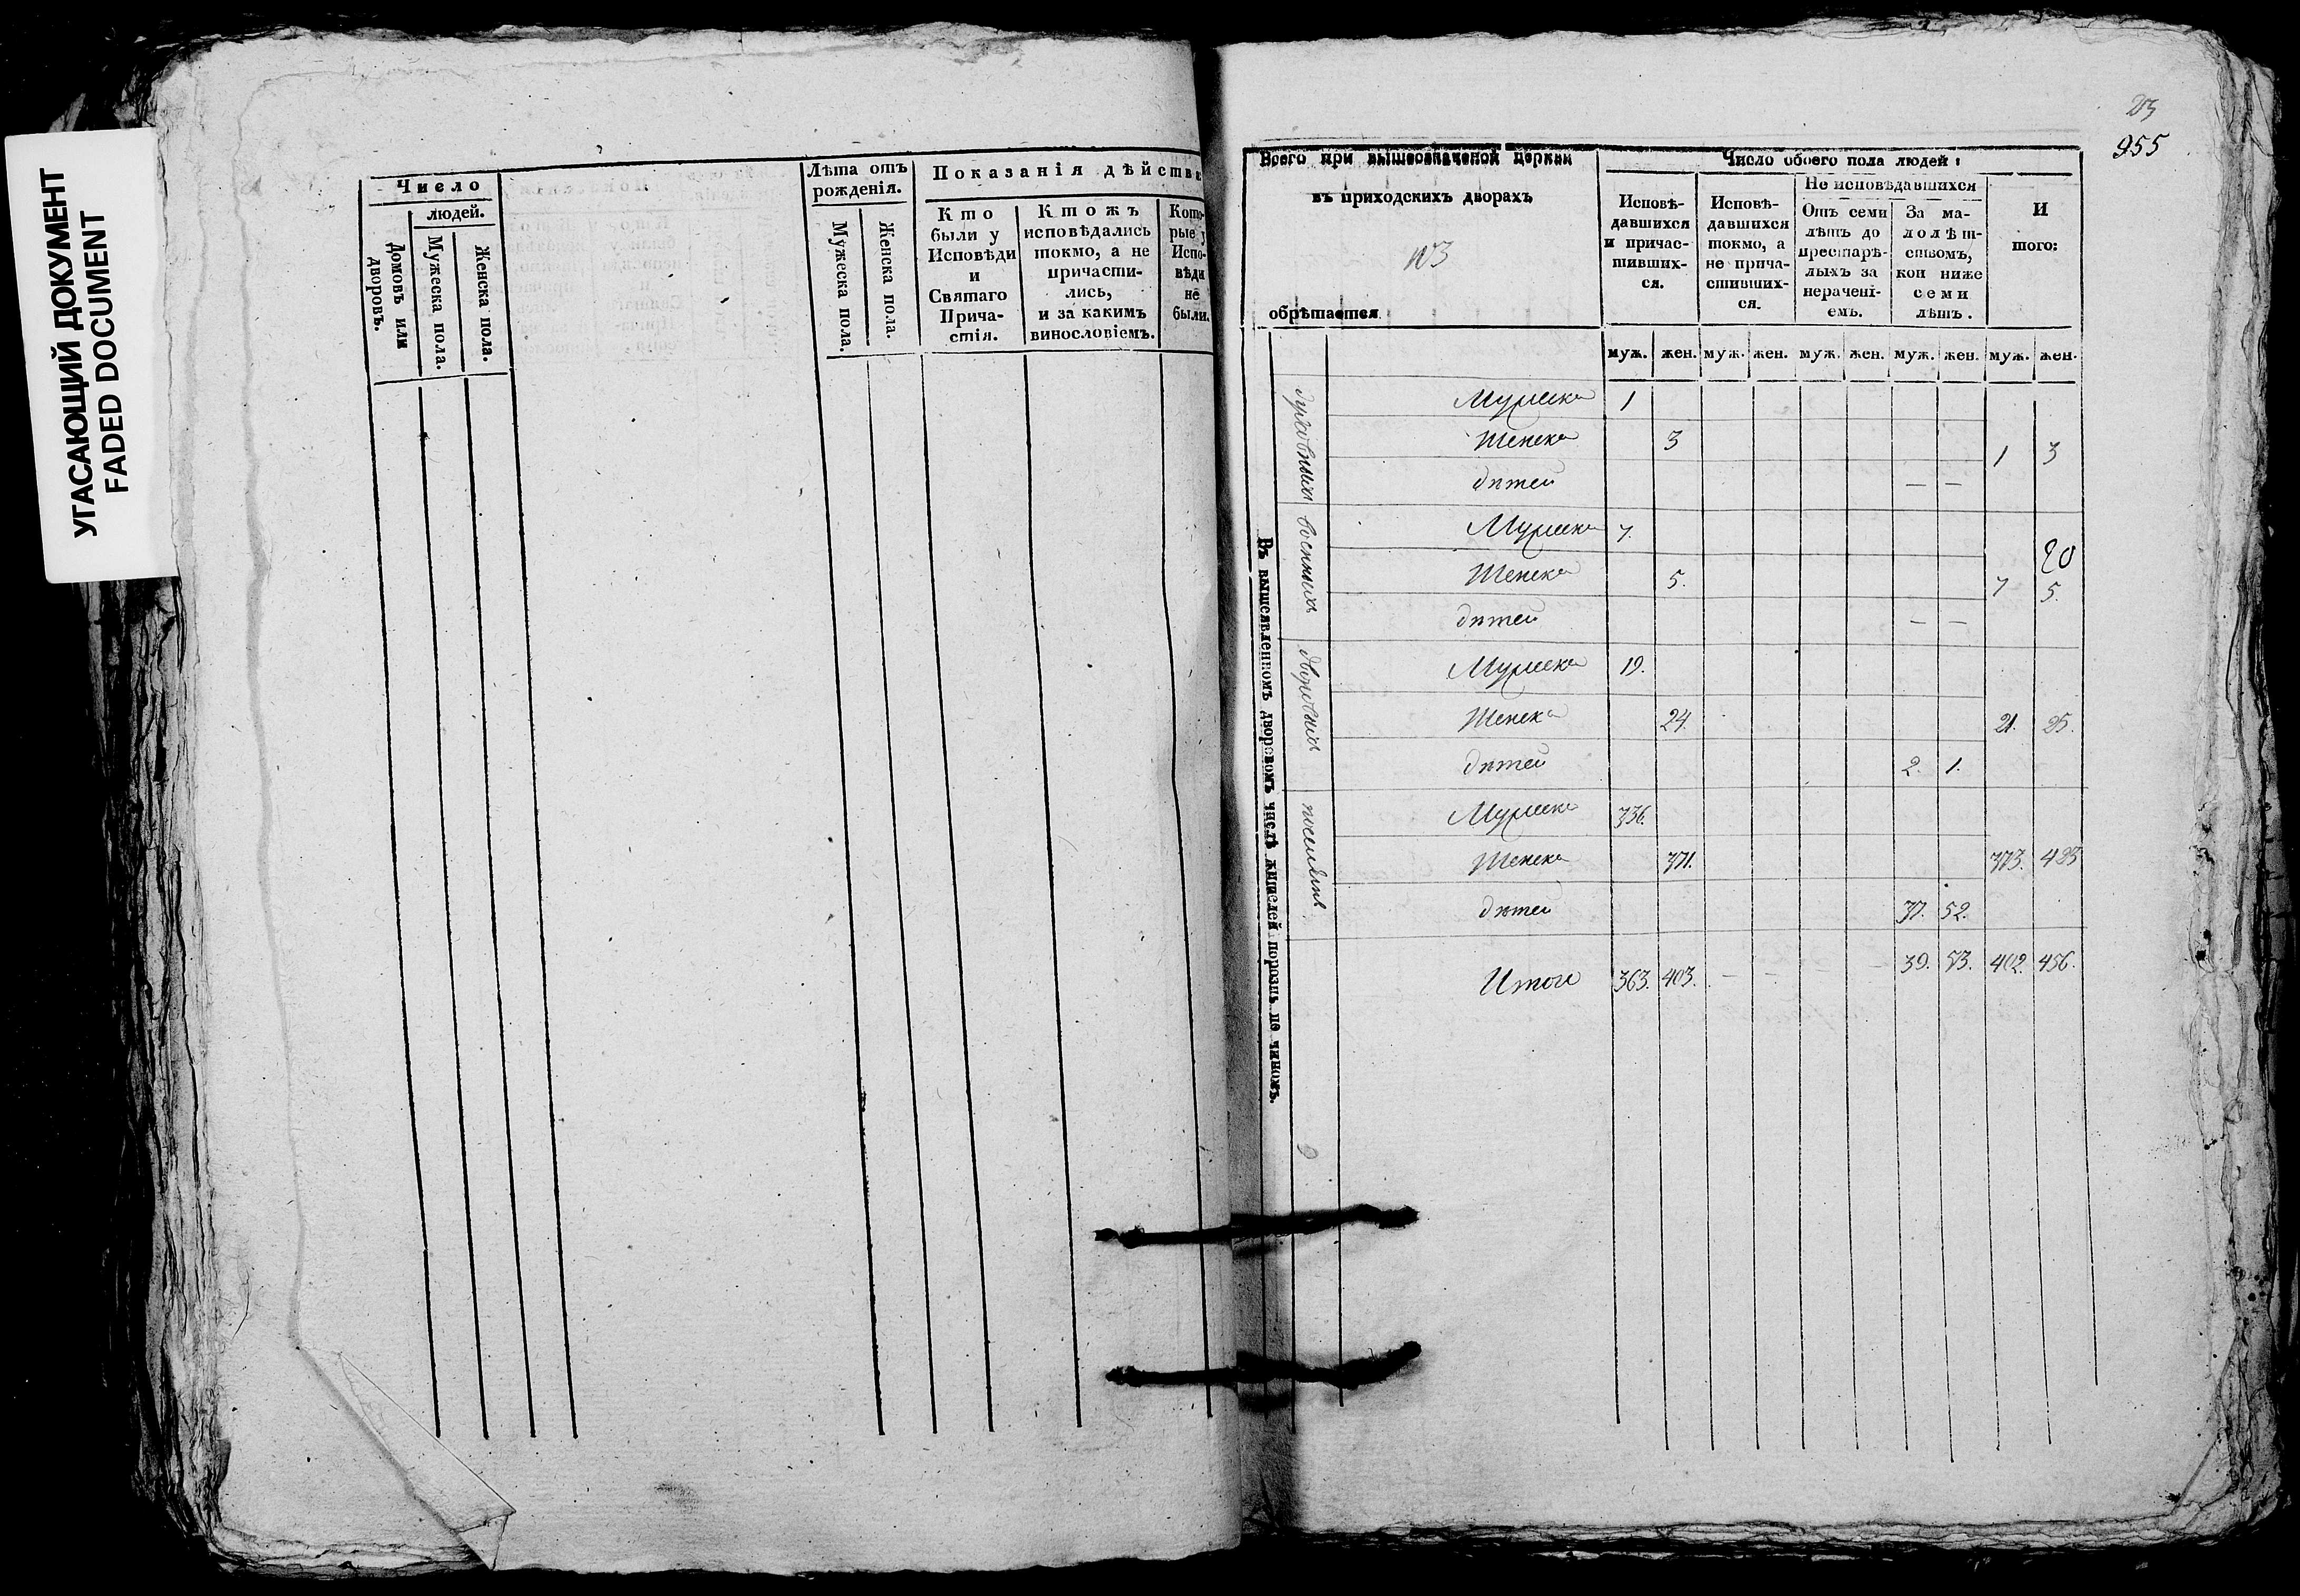 УГАСАЮЩИЙ ДОКУМЕНТ
FADED DOCUMENT
Число
людей.
Домовъ или дворовъ.
Мужеска пола.
Женска пола.
Лѣта отъ
рожденія.
Мужеска пола.
Женска пола.
Показанія дѣйстви
Кто
были у
Исповѣди
и
Святаго
Прича-
стія.
Ктожъ
исповѣдались
токмо, а не
причасти-
лись,
и за какимъ
винословіемъ.
Кото-
рые у
Испо-
вѣди
не
были.
955
Всего при вышеозначеной церкви
въ приходскихъ дворахъ
обрѣтается
Число обоего пола людей:
Исповѣ-
давшихся
и причас-
тивших-
ся.
Исповѣ-
давшихся
токмо, а
не прича-
стивших-
ся.
Не исповѣдавшихся
Отъ семи
лѣтъ до
престарѣ-
лыхъ за
нерачені-
емъ.
За ма-
лолѣт-
ствомъ,
кои ниже
семи
лѣтъ.
И
того:
муж. жен. муж. жен. муж. жен. муж. жен. муж. жен.
Въ вышеявленномъ дворовомъ числѣ жителей порознь по чиномъ.
духовныхъ
Мужеска 1
Женска 3 1 3
дѣтей — —
военныхъ
Мужеска 7.
20
Женска 5. 7 5.
дѣтей — —
дворовыхъ
Мужеска 19.
Женска 24. 21. 25.
дѣтей 2. 1.
поселянъ
Мужеска 336.
Женска 371. 373. 423
дѣтей 37. 52.
Итого 363. 403. — — — — 39. 53. 402. 456.